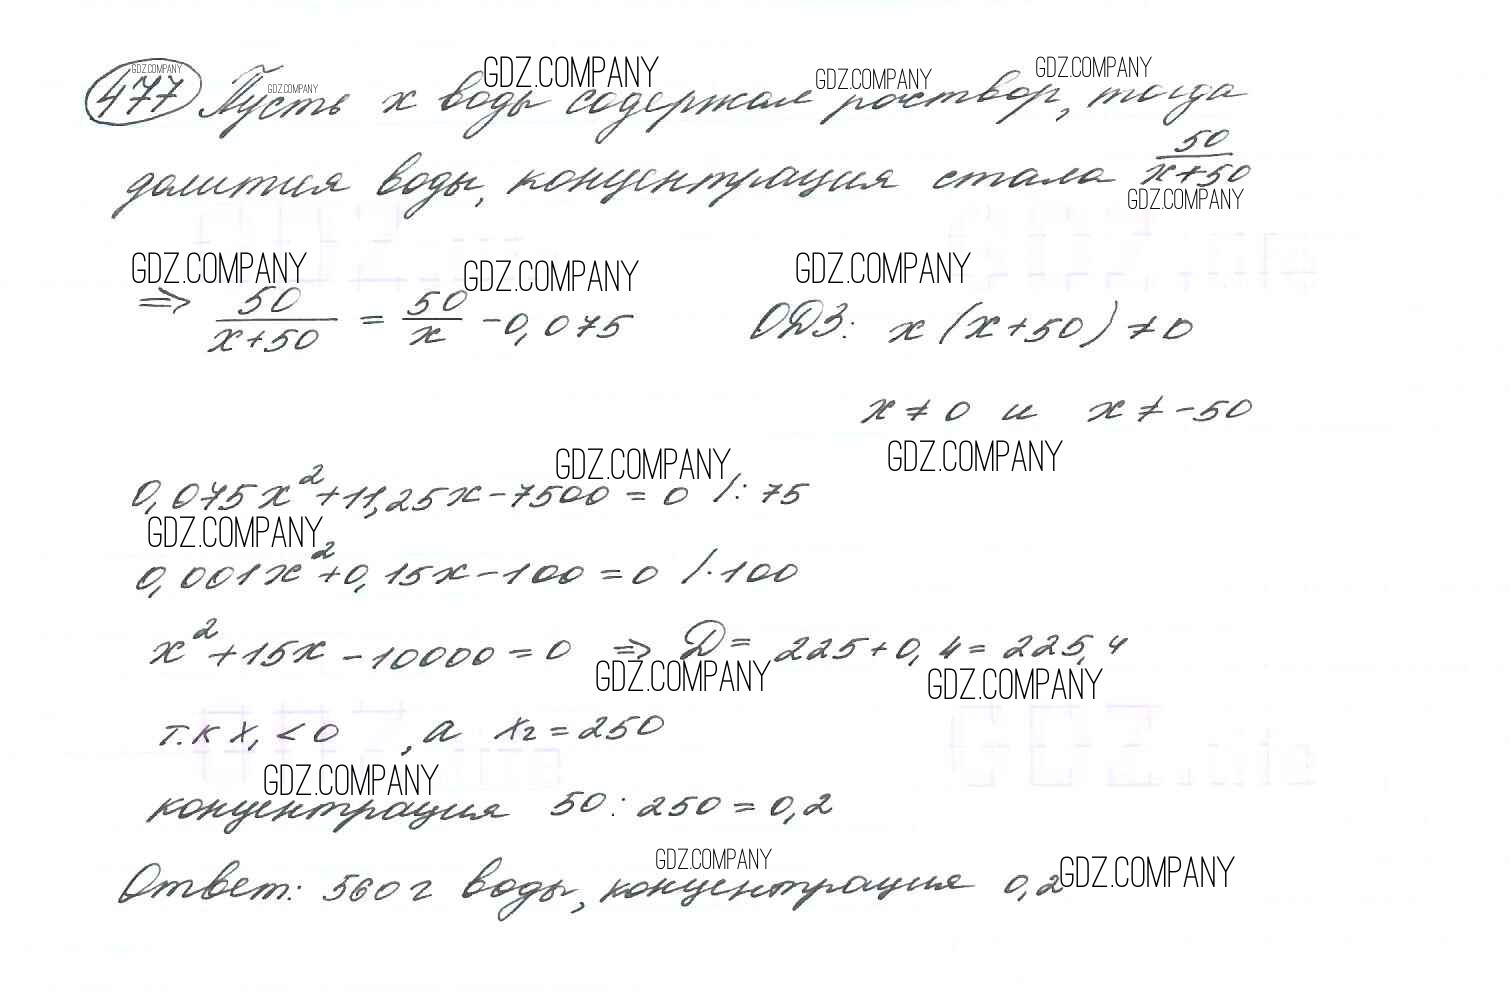 GDZ.COMPANY GDZ.COMPANY GDZ.COMPANY GDZ.COMPANY GDZ.COMPANY
477 Пусть x воды содержал раствор, тогда
долития воды, концентрация стала 50/(x+50)
GDZ.COMPANY
GDZ.COMPANY GDZ.COMPANY GDZ.COMPANY
⇒ 50/(x+50) = 50/x - 0,075 ОДЗ: x(x+50) ≠ 0
x ≠ 0 и x ≠ -50
GDZ.COMPANY GDZ.COMPANY
0,075x² + 11,25x - 7500 = 0 /: 75
GDZ.COMPANY
0,001x² + 0,15x - 100 = 0 /· 100
x² + 15x - 10000 = 0 ⇒ D = 225 + 0,4 = 225,4
GDZ.COMPANY GDZ.COMPANY
т.к x₁ < 0, а x₂ = 250
GDZ.COMPANY
концентрация 50 : 250 = 0,2
GDZ.COMPANY GDZ.COMPANY
Ответ: 560 г воды, концентрация 0,2